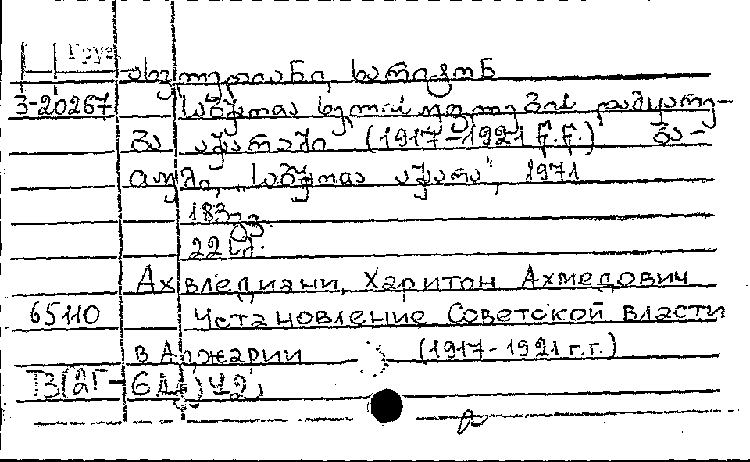 Груз
ახვლედიანი, ხარიტონ
3-20267 საბჭოთა ხელისუფლების დამყარე-
ბა აჭარაში (1917-1921 წ.წ.) ბა-
თუმი, „საბჭოთა აჭარა", 1971
183 გვ.
22 სმ.
Ахвледиани, Харитон Ахмедович
65110 Установление Советской власти
в Аджарии (1917-1921 г.г.)